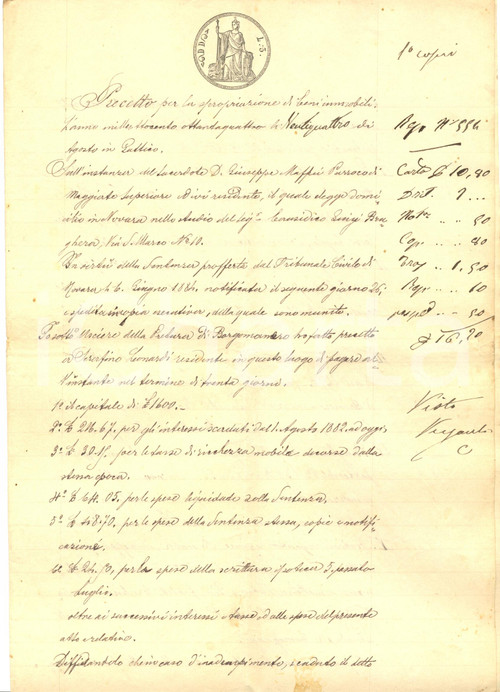 1ª copia
Precetto per la spropriazione di beni immobili
L'anno mille ottocento ottantaquattro di Ventiquattro di
Agosto in
Sull'instanza del Sacerdote D. Giuseppe Maffei Parroco di
Maggiate Superiore ivi residente, il quale elegge domi
cilio in Novara nello studio del sigr Causidico Luigi Bra
ghera, Via S. Marco N. 10.
In virtù della Sentenza profferta dal Tribunale Civile di
Novara li 6. Giugno 1884. notificata il seguente giorno 26
e spedita in copia esecutiva, della quale sono munito.
Io sottº Usciere della Pretura di Borgomanero ho fatto precetto
a Serafino Leonardi residente in questo luogo di pagare al
l'instante nel termine di trenta giorni.
1º il capitale di £ 1600.-
2º £ 214.67. per gli interessi scaduti dal 1. Agosto 1882. ad oggi,
3º £ 30. per le tasse di ricchezza mobile decorse dalla
stessa epoca.
4º £ 64.05. per le spese liquidate colla Sentenza.
5º £ 48.70. per le spese della Sentenza stessa, copie e notifi
cazione.
per le spese della scrittura 5. passato
Luglio.
oltre ai successivi interessi e tasse, ed alle spese del presente
atto e relative.
Diffidandolo che in caso d'inadempimento, scaduto il detto
Rep. Nº 556
Carta £ 10,80
Dirt. 2
50
Cop. 80
1.50
Rep. 10
50
Visto